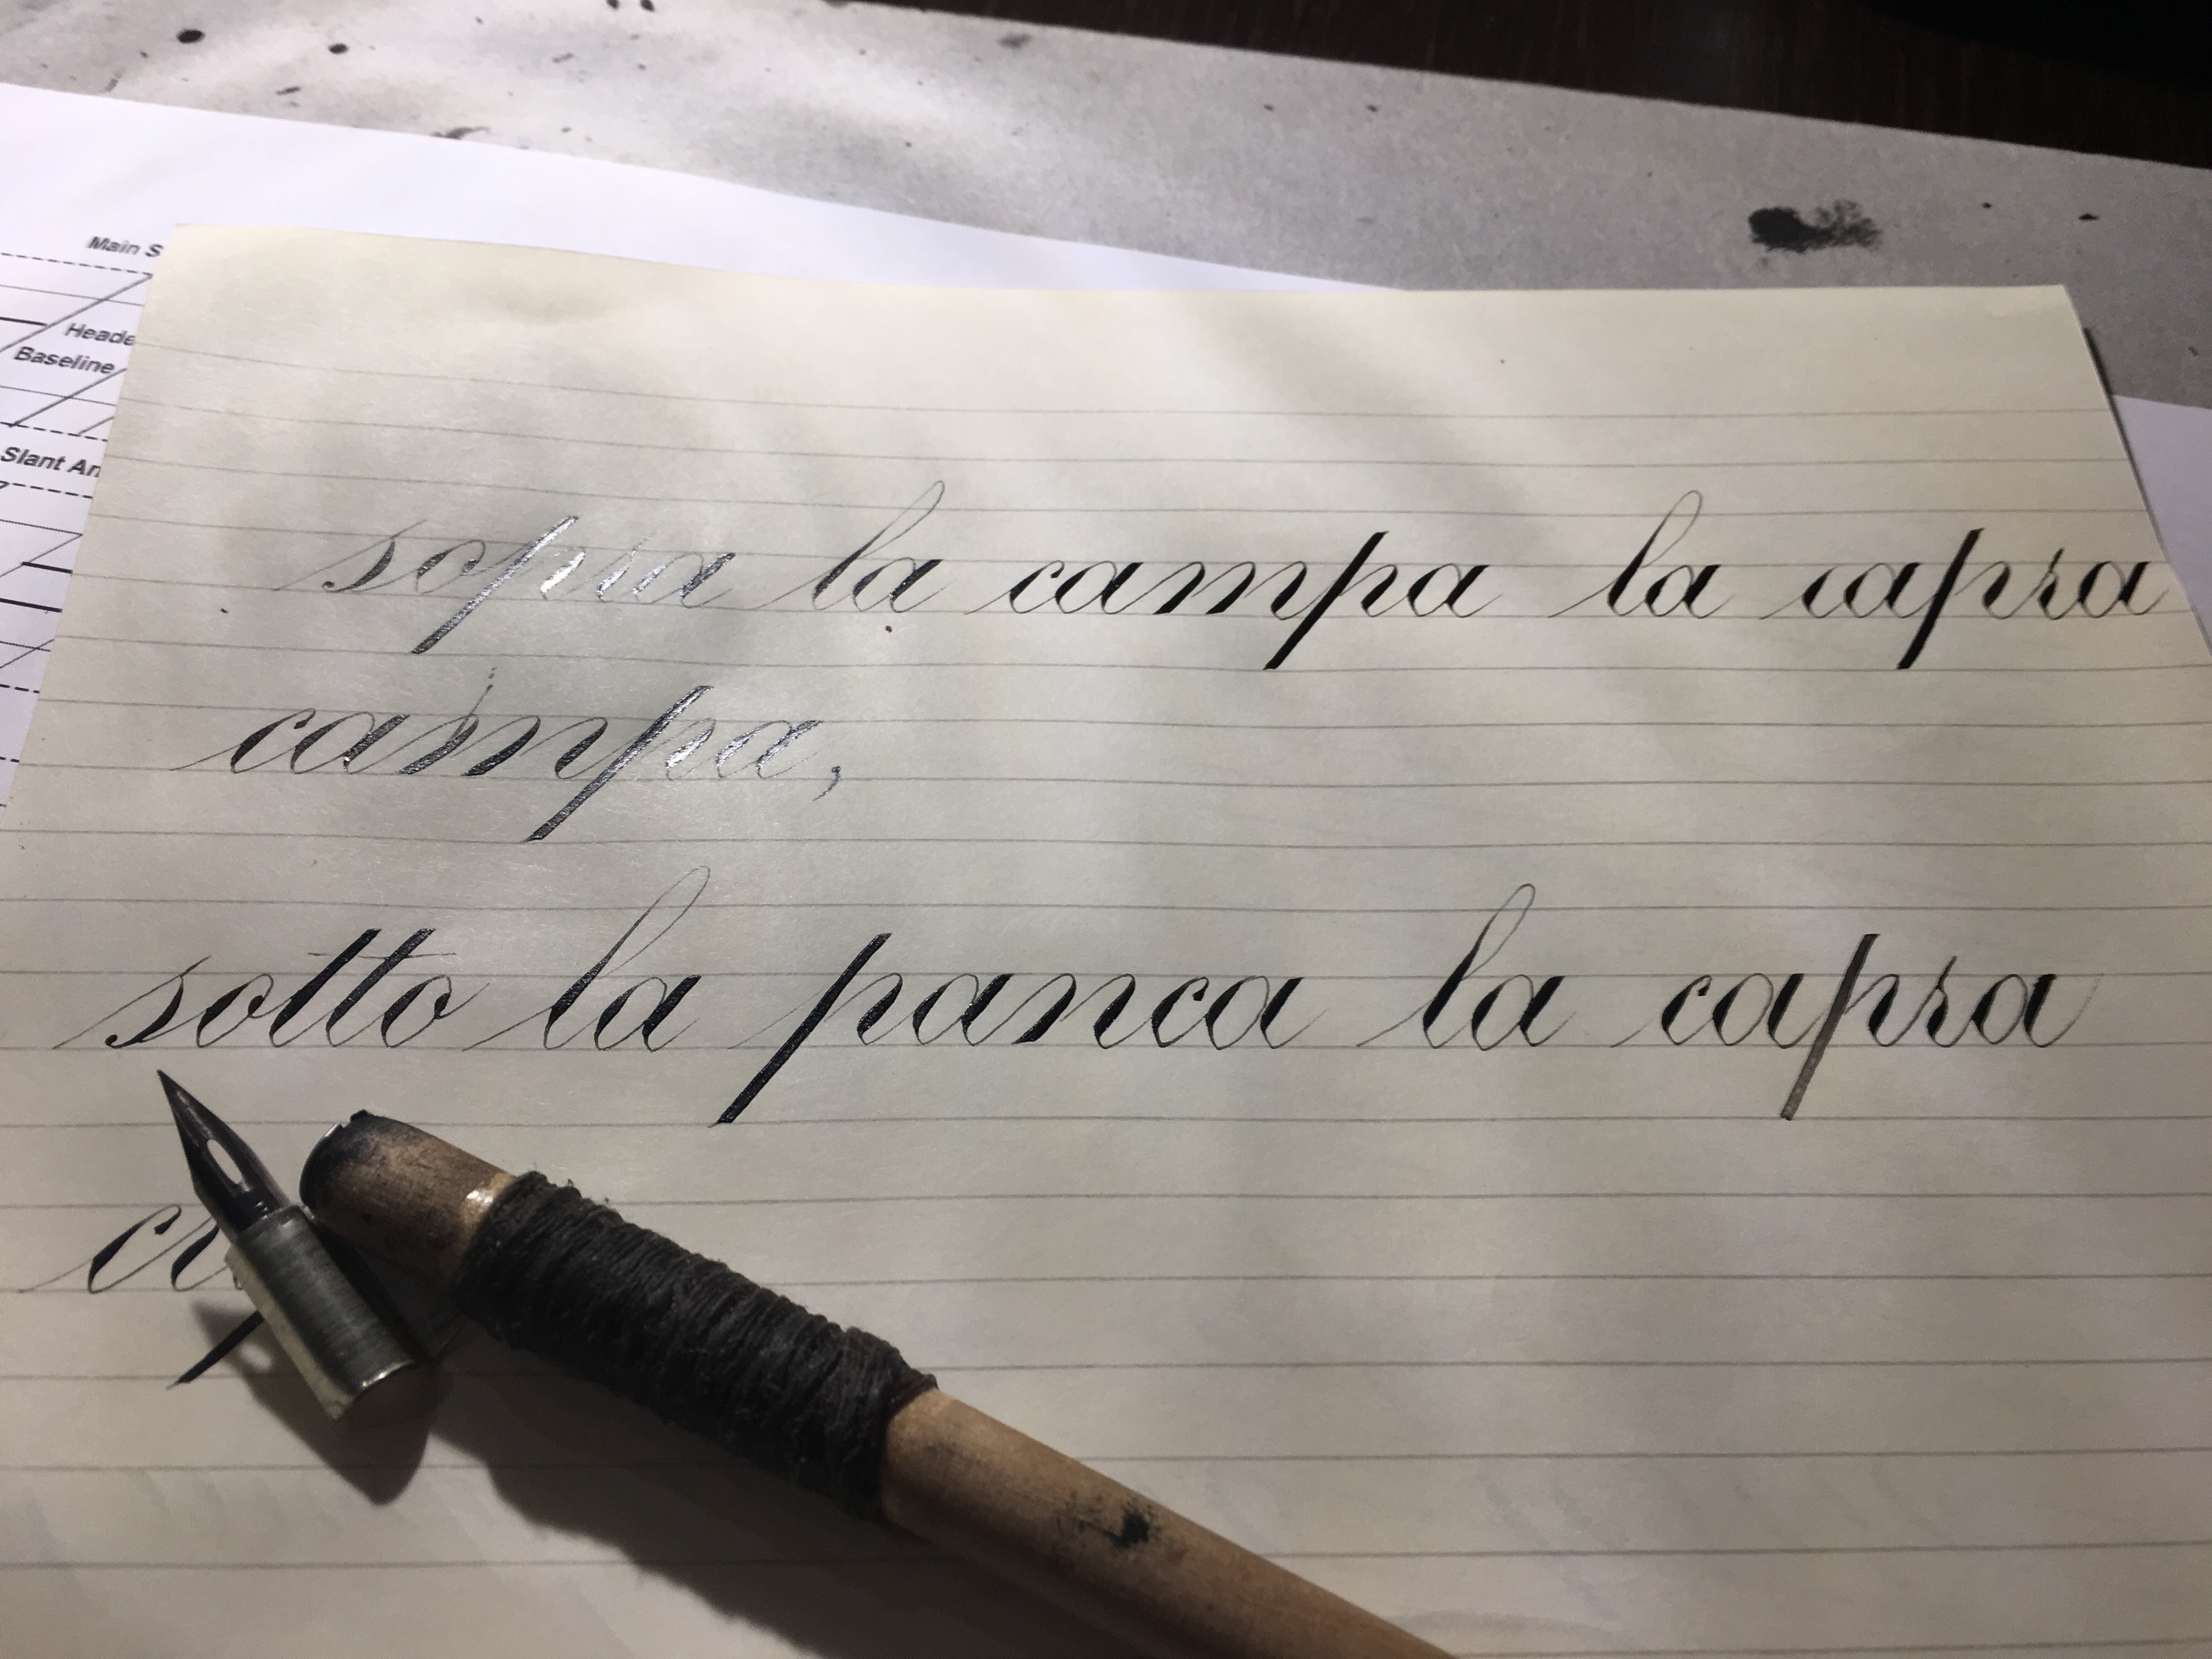 Main
Baseline
Slant
sopra la campa la capra
campa,
sotto la panca la capra